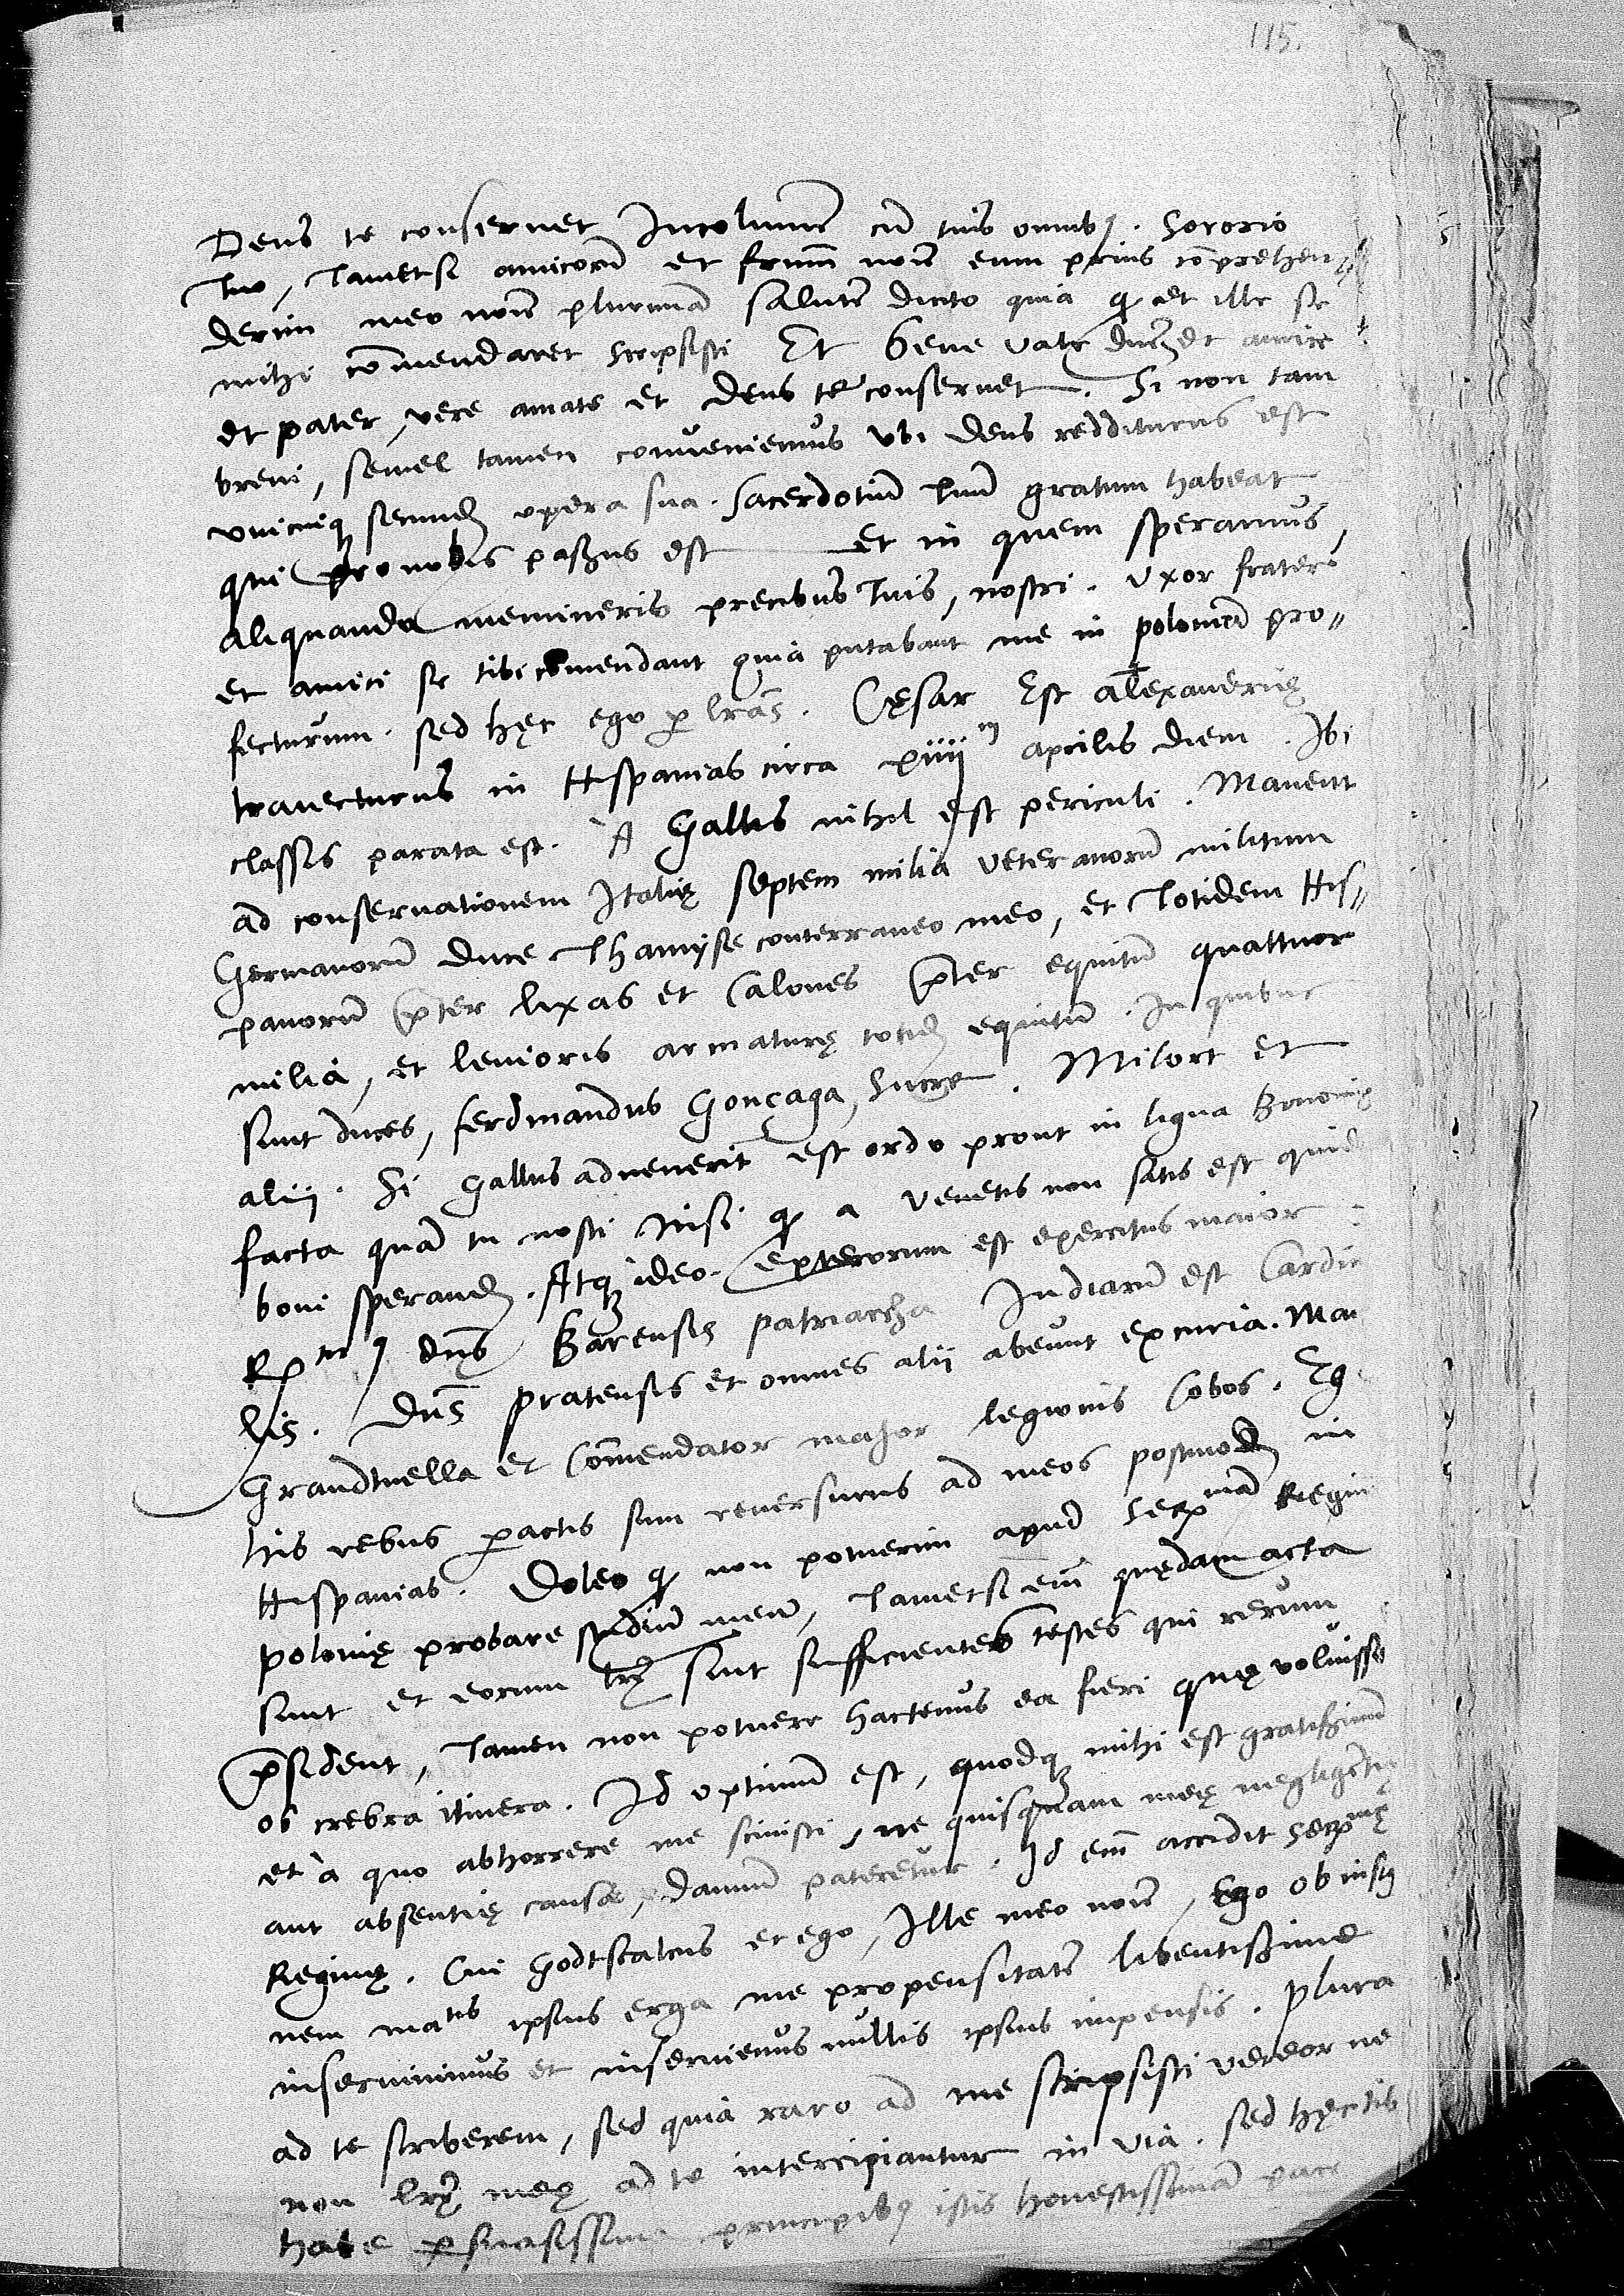 115.
Deus te conseruet Incolumē cū tuis omnibꝫ. Sororio
tuo, Tametsi amicorū et frūm noīe eum prius cōprehen
derim meo noīe plurimā salutē dicito quia ꝙ et ille se
mihi cōmendaret scripsisti Et bene vale amice
et pater, vere amate et Deus te conseruet. Si non tam
breui, semel tamen conueniemus vbi Deus redditurus est
vnicuiqꝫ secundū opera sua. Sacerdotiū tuū gratum habeat
qui pro nobis paßus est et in quem speramus,
aliquando memineris precibus tuis, nostri. Vxor fratres
et amici se tibi cōmendant quia putabant me in poloniā pro„
fecturum. sed hęc ego p lr̄as. Cęsar Est alexandrię
traiecturus in Hispanias circa xiiii m aprilis diem. Ibi
classis parata est. A Gallis nihil est periculi. Manent
ad conseruationem Italię septem milia veteranorū militum
Germanorū duce Thamyse conterraneo meo, et totidem His„
panorū p̄ter lixas et Calones p̄ter equitū quattuor
milia, et leuioris armaturę totidē equitū. In quibus
sunt duces, ferdinandus Gonçaga, Sucre. Milort et
alii. Si Gallus aduenerit est ordo prout in ligua Bononię
facta quā tu nosti Nisi ꝙ a Venetis non satis est quid
boni sperandū. Atqꝫ ideo exterorum est exercitus maior.
Rmus dn̄s Barensis patriarcha Indiarū est Cardi
lis. Dn̄s pratensis et omnes alii abeunt ex curia. Ma
Grandtuella et Cōmendator major legionis Cobos. Eg
his rebus pactis sum reuersurus ad meos postmodū in
Hispanias. Doleo ꝙ non potuerim apud Serᵐᵃᵐ Regin
polonię probare studiū meū, Tametsi eīn quędam acta
sunt et eorum lr̄ę sint sufficientes testes qui rerum
p̄sident, Tamen non potuere hactenus ea fieri quę voluisse
ob crebra itinera. Id optimū est, quodqꝫ mihi est gratißimū
et à quo abhorrere me sciuisti, ne quisquam meę negligētię
aut absentię causa, damnū pateretur. Id eīn accidit Serᵐę
Reginę. Cui Godtscalcus et ego, Ille meo noīe, Ego ob insig
nem matis ipsius erga me propensitatē libentißime
inseruiuimus et inseruiemus nullis ipsius impensis. plura
ad te scriberem, sed quia raro ad me scripsisti vereor ne
non lr̄ę meę ad te intercipiantur in via. sed hęc tib
habe psuasissima principibꝫ istis honestissimā